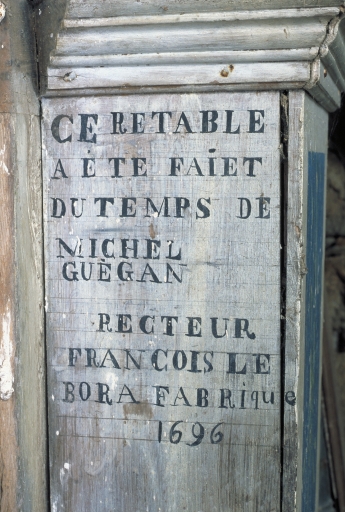 CE RETABLE
A ÈTÉ FAÏET
DU TEMPS DE
MICHEL
GUÈGAN
RECTEUR
FRANCOIS LE
BORA FABRIQUE
1696